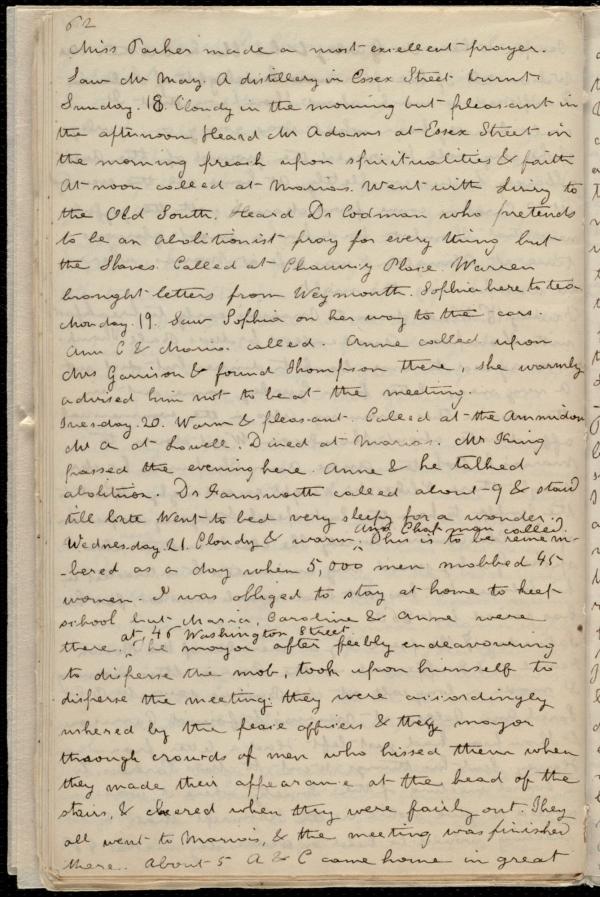 62
Miss Parker made a most excellent prayer.
Saw Mr May. A distillery in Essex Street burnt
Sunday. 18. Cloudy in the morning but pleasant in
the afternoon Heard Mr Adams at Essex Street in
the morning preach upon spiritualities & faith
At noon called at Marias. Went with to
the Old South. Heard Dr Codman who pretends
to be an abolitionist pray for every thing but
the Slaves. Called at Chauncy Place. Warren
brought letters from Weymouth. Sophia here to tea
Monday. 19. Saw Sophia on her way to the cars.
Ann C & Maria. called. Anne called upon
Mrs Garrison & found Thompson there, she warmly
advised him not to be at the meeting.
Tuesday. 20. Warm & pleasant. Called at the Ammidon
Mr A at Lowell. Dined at Marias. Mr King
passed the evening here. Anne & he talked
abolition. Dr Farnsworth called about 9 & staid
till late Went to bed very sleepy for a wonder.
Ann Chapman called.
Wednesday. 21. Cloudy & warm. This is to be remem-
-bered as a day when 5,000 men mobbed 45
women. I was obliged to stay at home to keep
school but Maria, Caroline & Anne were
at, 46 Washington Street
there. The mayor after feebly endeavouring
to disperse the mob, took upon himself to
disperse the meeting; they were accordingly
ushered by the peace officers & the mayor
through crowds of men who hissed them when
they made their appearance at the head of the
stairs, & cheered when they were fairly out. They
all went to Marias, & the meeting was finished
there. About 5 A & C came home in great